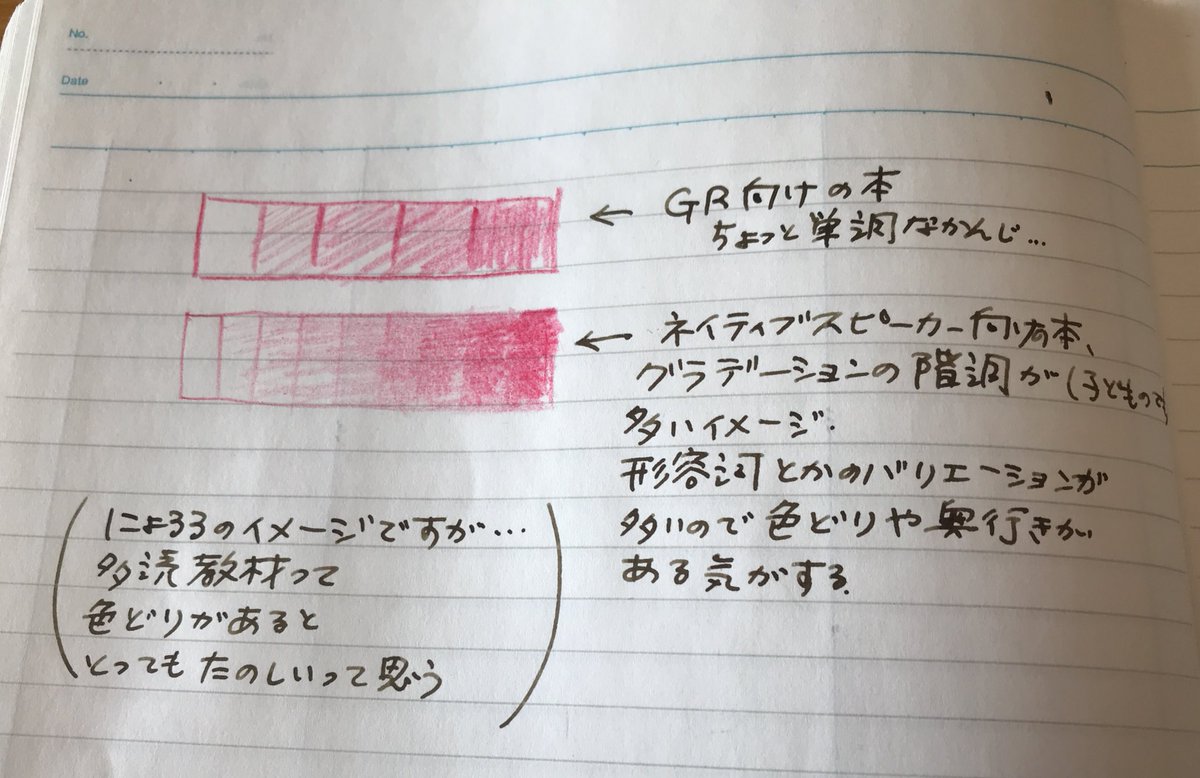 No.
Date
← GR向けの本
ちょっと単調なかんじ…
← ネイティブスピーカー向けの本、
グラデーションの階調が(子どものでも)
多いイメージ.
形容詞とかのバリエーションが
多いので色どりや奥行きが
ある気がする.
(にょろろのイメージですが…
多読教材って
色どりがあると
とってもたのしいって思う)